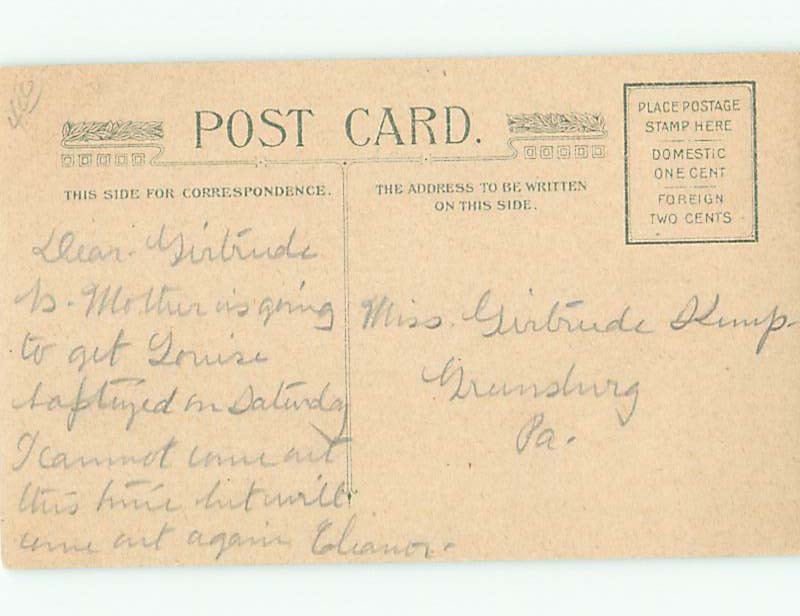 400
POST CARD.
PLACE POSTAGE
STAMP HERE
DOMESTIC
ONE CENT
FOREIGN
TWO CENTS
THIS SIDE FOR CORRESPONDENCE.
THE ADDRESS TO BE WRITTEN
ON THIS SIDE.
Dear. Girtrude
Mother is going
to get Louise
baptized on Saturday
I cannot come out
this time but will
come out again Eleanor.
Miss. Girtrude Kemp
Greensburg
Pa.